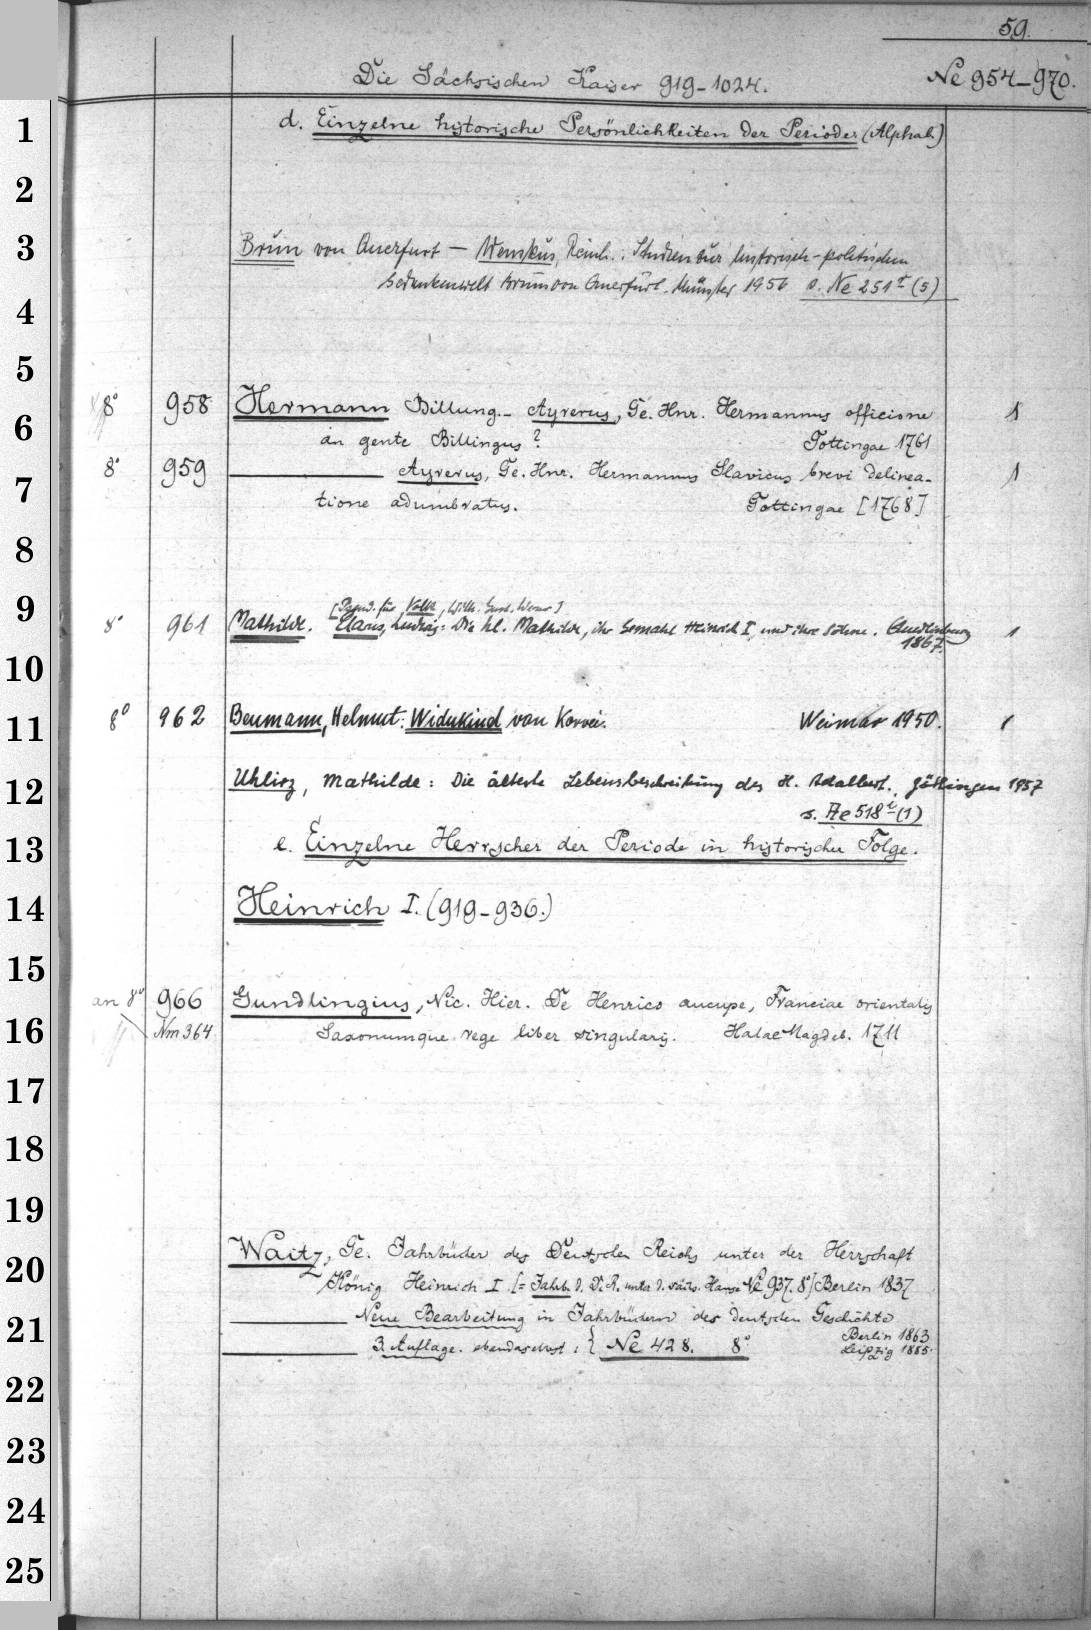 59.
Die Sächsischen Kaiser 919-1024. Ne 954-970.
1 d. Einzelne historische Persönlichkeiten der Periode (Alphab.)
2
3 Brun von Querfurt — Wenskus, Reinh.: Studien zur historisch-politischen
Gedankenwelt Bruns von Querfurt. Münster 1956 s. Ne 251 r (5)
4
5
8° 958 Hermann Billung. - Ayrerus, Ge. Hnr. Hermannus officione 1
6 an gente Billingus? Gottingae 1761
8° 959 ——— Ayrerus, Ge. Hnr. Hermannus Slavicus brevi delinea- 1
7 tione adumbratus. Gottingae [1768]
8
9 [Pseud. für Volk, Wilh. Gust. Werner]
8° 961 Mathilde. Clarus, Ludwig: Die hl. Mathilde, ihr Gemahl Heinrich I, und ihre Söhne. Quedlinburg 1
1867.
10
11 8° 962 Beumann, Helmut: Widukind von Korvei. Weimar 1950. 1
12 Uhlirz, Mathilde: Die älteste Lebensbeschreibung des hl. Adalbert. Göttingen 1957
s. Ae 518 i (1)
13 e. Einzelne Herrscher der Periode in historischer Folge.
14 Heinrich I. (919-936.)
15
an 8° 966 Gundlingius, Nic. Hier. De Henrico aucupe, Franciae orientalis
16 Nm 364 Saxonumque rege liber singularis. Halae Magdeb. 1711
17
18
19
Waitz, Ge. Jahrbücher des Deutschen Reichs unter der Herrschaft
20 König Heinrich I [= Jahrb. d. D. R. unter d. sächs. Hause Ne 937. 8°] Berlin 1837
——— Neue Bearbeitung in Jahrbüchern der deutschen Geschichte
21 Berlin 1863
——— 3. Auflage. ebendaselbst: } Ne 428. 8° Leipzig 1885.
22
23
24
25